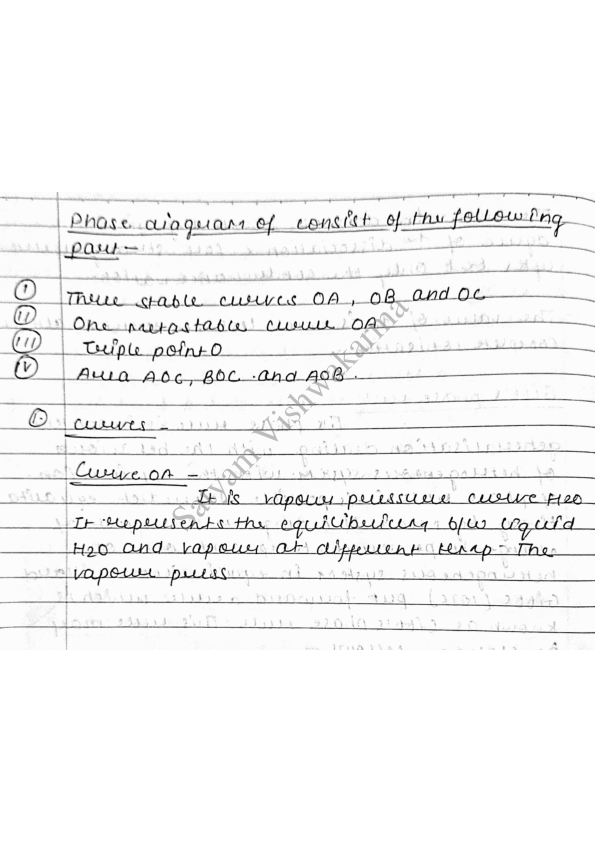 Phase diagram of consist of the following
part-
I Three stable curves OA, OB and OC
II One metastable curve OA
III Triple point O
IV Area AOC, BOC and AOB.
1. Curves -
Curve OA -
It is vapour pressure curve H2O
It represents the equilibrium b/w liquid
H2O and vapour at different temp. The
vapour press
Satyam Vishwakarma